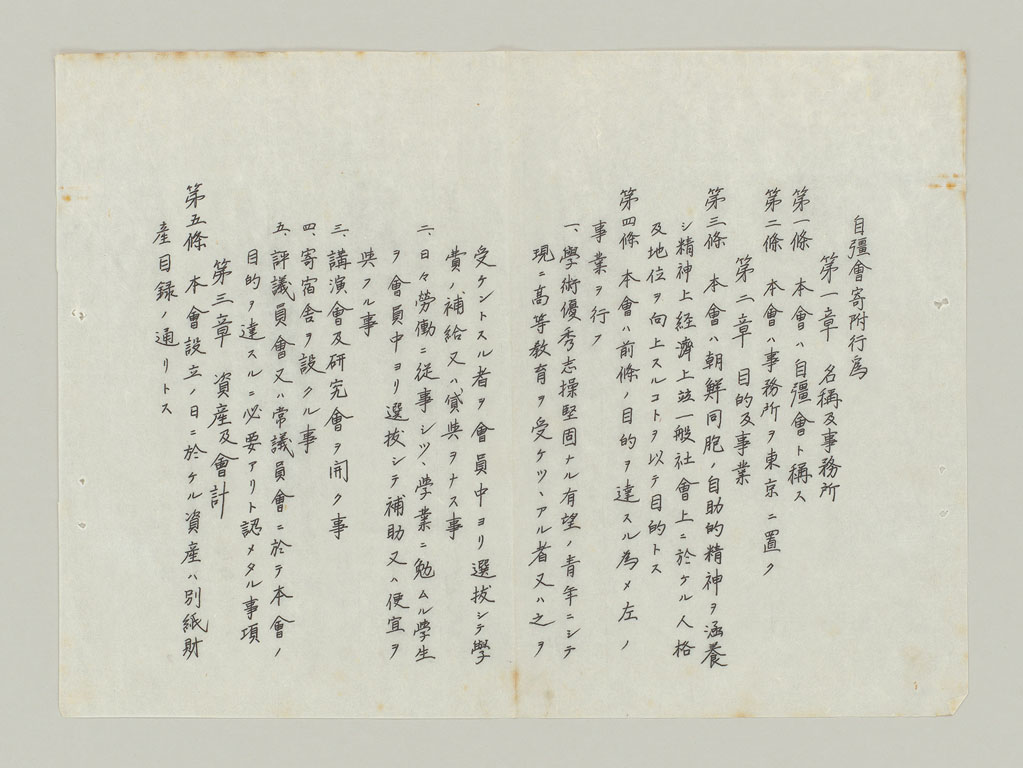 自彊會寄附行為
第一章　名稱及事務所
第一條　本會ハ自彊會ト稱ス
第二條　本會ハ事務所ヲ東京ニ置ク
第二章　目的及事業
第三條　本會ハ朝鮮同胞ノ自助的精神ヲ涵養
シ精神上経濟上並一般社會上ニ於ケル人格
及地位ヲ向上スルコトヲ以テ目的トス
第四條　本會ハ前條ノ目的ヲ達スル為メ左ノ
事業ヲ行フ
一、學術優秀志操堅固ナル有望ノ青年ニシテ
現ニ高等教育ヲ受ケツヽアル者又ハ之ヲ
受ケントスル者ヲ會員中ヨリ選拔シテ學
費ノ補給又ハ貸與ヲナス事
二、日々勞働ニ従事シツヽ學業ニ勉ムル學生
ヲ會員中ヨリ選拔シテ補助又ハ便宜ヲ
與フル事
三、講演會及研究會ヲ開ク事
四、寄宿舎ヲ設クル事
五、評議員會又ハ常議員會ニ於テ本會ノ
目的ヲ達スルニ必要アリト認メタル事項
第三章　資産及會計
第五條　本會設立ノ日ニ於ケル資産ハ別紙財
産目録ノ通リトス